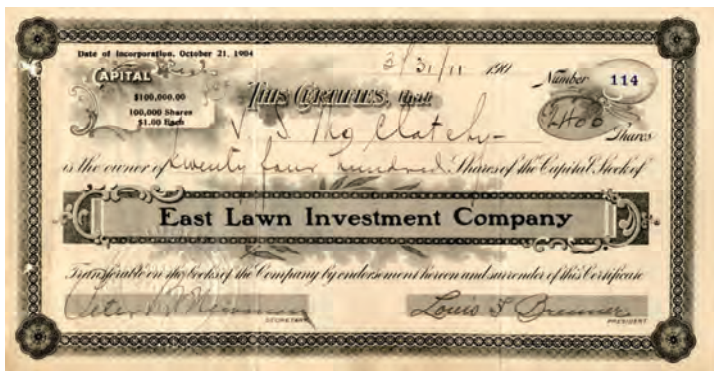 Date of Incorporation, October 21, 1904
3/31/11 190
CAPITAL
Number 114
$100,000.00
100,000 Shares
$1.00 Each
THIS CERTIFIES, that
V. S. McClatchy
2400 Shares
is the owner of twenty four hundred Shares of the Capital Stock of
East Lawn Investment Company
Transferable on the books of the Company by endorsement hereon and surrender of this Certificate
Louis F Breuner
SECRETARY
PRESIDENT